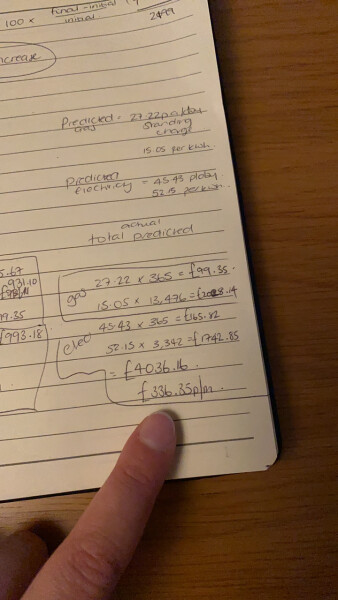 100 × final - initial
initial
2499
increase
Predicted = 27.22p a/day
gas standing
charge
15.05 per kwh
Predicted = 45.43 p/day
electricity 52.15 per kwh
actual
total predicted
5.67
931.10
99.35
£993.18
gas 27.22 × 365 = £99.35
15.05 × 13,476 = £2028.14
elec 45.43 × 365 = £165.82
52.15 × 3,342 = £1742.85
= £4036.16
£336.35p/m.